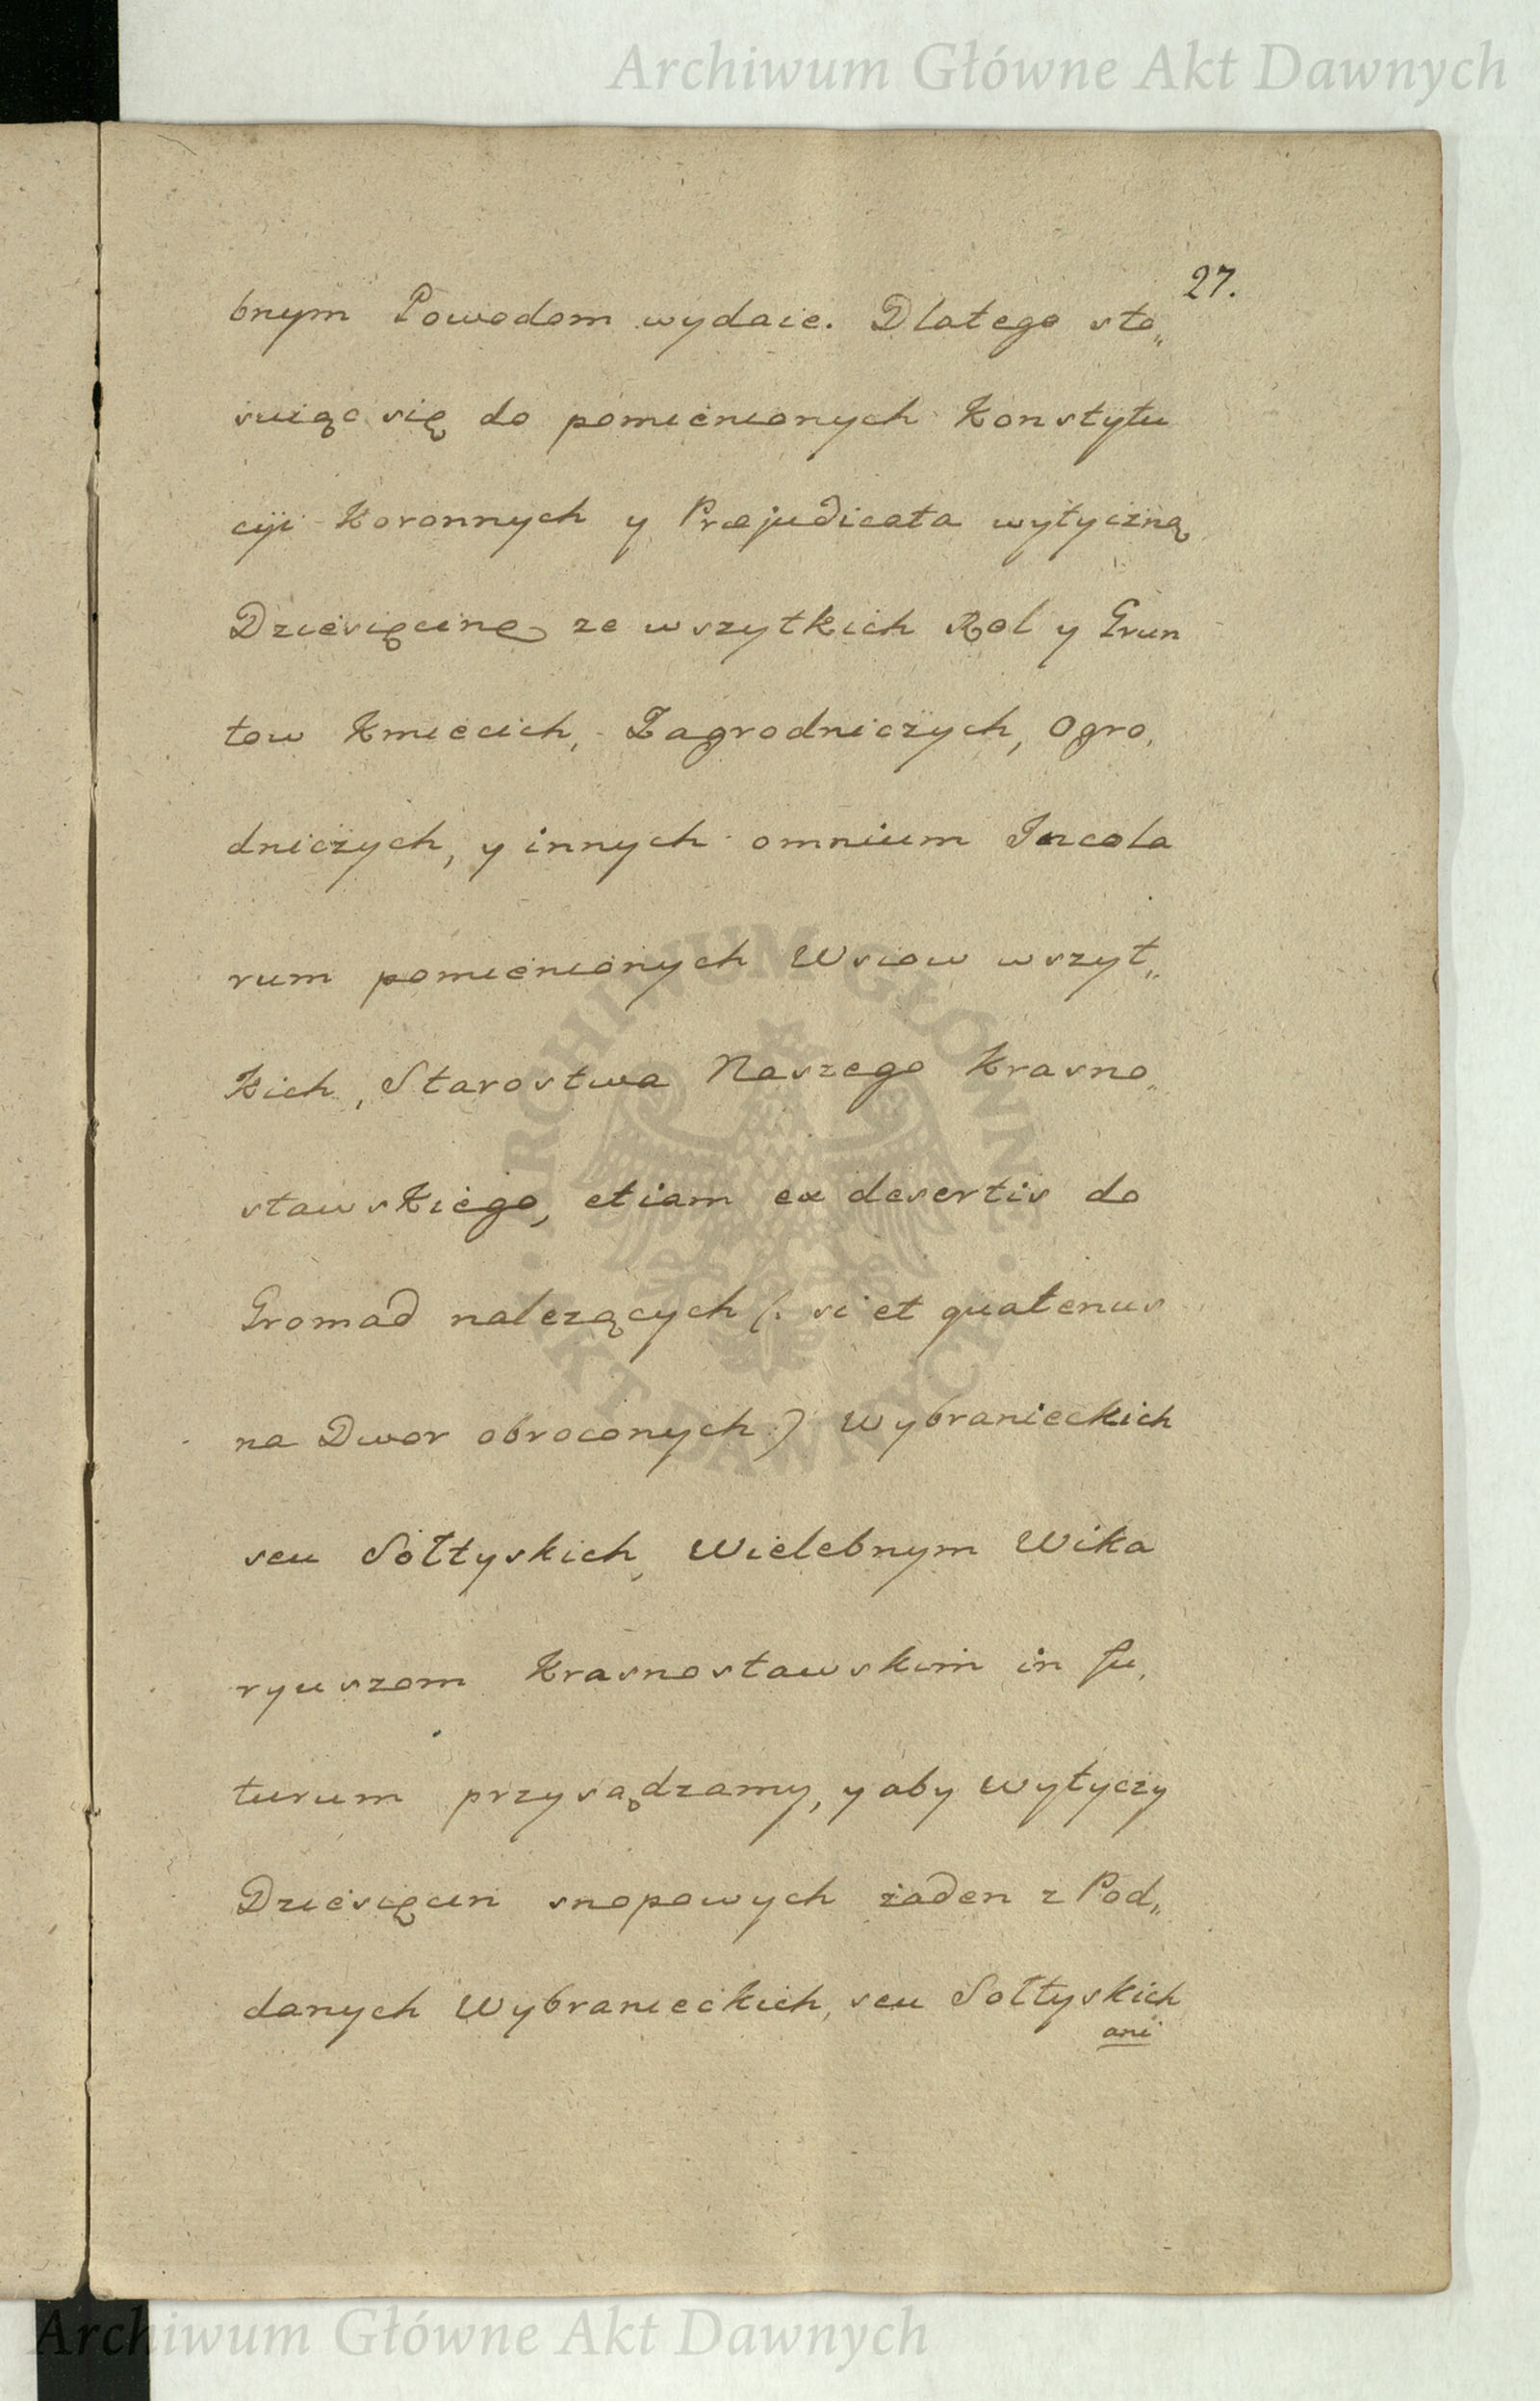 Archiwum Główne Akt Dawnych
27.
bnym Powodom wydaie. Dlatego sto„
suiąc się do pomienionych Konstytu
cyi Koronnych y Præjudicata wytyczną
Dziesięcinę ze wszytkich Rol y Grun
tow Kmiecich, Zagrodniczych, Ogro,
dniczych, y innych omnium Incola
rum pomienionych Wsiow wszyt„
kich, Starostwa Naszego Krasno„
stawskiego, etiam ex desertis do
Gromad nalezących (: si et quatenus
na Dwor obroconych) Wybranieckich
seu Sołtyskich, Wielebnym Wika
ryuszom Krasnostawskim in fu,
turum przysądzamy, y aby wytyczy
Dziesięcin snopowych żaden z Pod„
danych Wybranieckich, seu Sołtyskich
ani
ARCHIWUM GŁÓWNE AKT DAWNYCH
Archiwum Główne Akt Dawnych